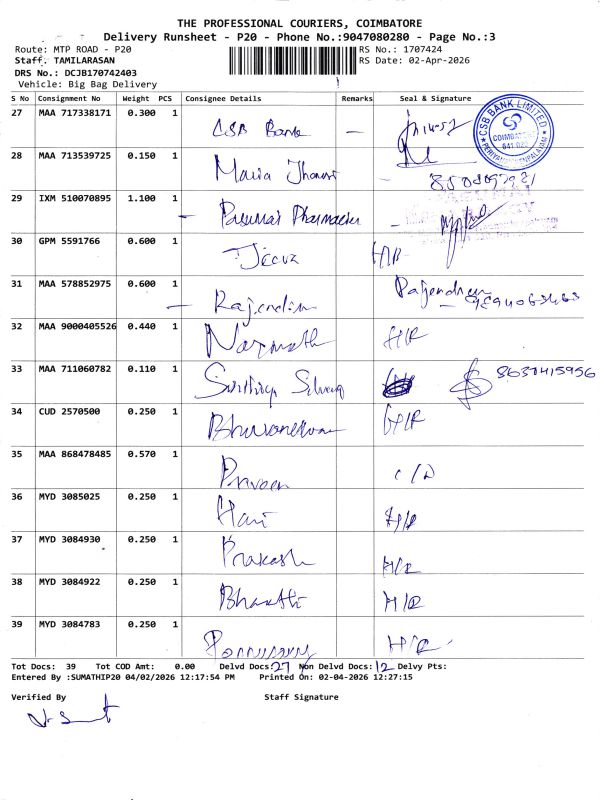 THE PROFESSIONAL COURIERS, COIMBATORE
Delivery Runsheet - P20 - Phone No.:9047080280 - Page No.:3
Route: MTP ROAD - P20 RS No.: 1707424
Staff: TAMILARASAN RS Date: 02-Apr-2026
DRS No.: DCJB170742403
Vehicle: Big Bag Delivery
S No Consignment No Weight PCS Consignee Details Remarks Seal & Signature
27 MAA 717338171 0.300 1 CSB Bank —
CSB BANK LIMITED
COIMBATORE
641 020
28 MAA 713539725 0.150 1 Maria
29 IXM 510070895 1.100 1
30 GPM 5591766 0.600 1
31 MAA 578852975 0.600 1 Rajendran Rajendran
32 MAA 9000405526 0.440 1 H/R
33 MAA 711060782 0.110 1 8637415956
34 CUD 2570500 0.250 1 H/R
35 MAA 868478485 0.570 1 Praveen C/D
36 MYD 3085025 0.250 1 Hari H/R
37 MYD 3084930 0.250 1 Prakash H/R
38 MYD 3084922 0.250 1 Bharathi H/R
39 MYD 3084783 0.250 1 H/R
Tot Docs: 39 Tot COD Amt: 0.00 Delvd Docs: 27 Non Delvd Docs: 12 Delvy Pts:
Entered By :SUMATHIP20 04/02/2026 12:17:54 PM Printed On: 02-04-2026 12:27:15
Verified By Staff Signature